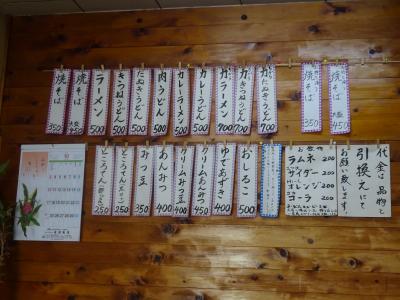 焼そば 350
焼そば 大盛 450
ラーメン 500
きつねうどん 500
たぬきうどん 500
肉うどん 500
カレーラーメン 500
カレーうどん 500
ラーメン 700
うどん 700
うどん 700
焼そば 350
焼そば 大盛 450
ところてん 250
ところてん 250
みつ豆 350
あんみつ 400
クリームみつ豆 400
クリームあんみつ 450
ゆであずき 400
おしるこ 500
ラムネ 200
サイダー 200
オレンジ 200
コーラ 200
代金は品物と
引換えにて
お願い致します。